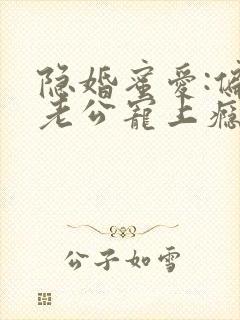 隐婚蜜爱:偏
老公宠上瘾
公子如雪